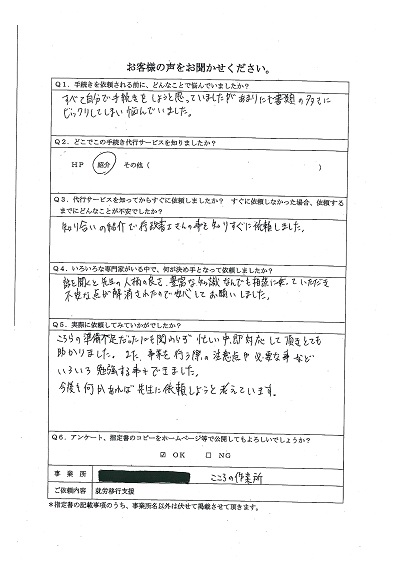 お客様の声をお聞かせください。
Q1．手続きを依頼される前に、どんなことで悩んでいましたか？
すべて自分で手続きをしようと思っていましたがあまりにも書類の多さに
ビックリしてしまい悩んでいました。
Q2．どこでこの手続き代行サービスを知りましたか？
HP 紹介 その他（ ）
Q3．代行サービスを知ってからすぐに依頼しましたか？ すぐに依頼しなかった場合、依頼する
までにどんなことが不安でしたか？
知り合いの紹介で行政書士さんの事を知りすぐに依頼しました。
Q4．いろいろな専門家がいる中で、何が決め手となって依頼しましたか？
話を聞くと先生の人柄の良さ、豊富な知識、なんでも相談に乗っていただき
不安な点が解消されたので安心してお願いしました。
Q5．実際に依頼してみていかがでしたか？
こちらの準備不足だったにも関わらず忙しい中、即対応して頂きとても
助かりました。また、事業を行う際の注意点や必要な事など
いろいろ勉強する事ができました。
今後も何かあれば先生に依頼しようと考えています。
Q6．アンケート、指定書のコピーをホームページ等で公開してもよろしいでしょうか？
☑ OK □ NG
事業所 こころの作業所
ご依頼内容 就労移行支援
＊指定書の記載事項のうち、事業所名以外は伏せて掲載させて頂きます。